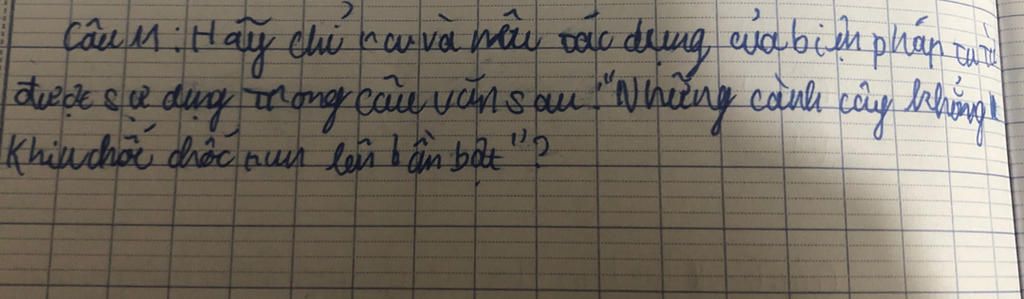 Câu 11: Hãy chỉ ra và nêu tác dụng của biện pháp tu từ
được sử dụng trong câu văn sau: "Những cành cây khẳng
khiu chốc chốc run lên bần bật"?